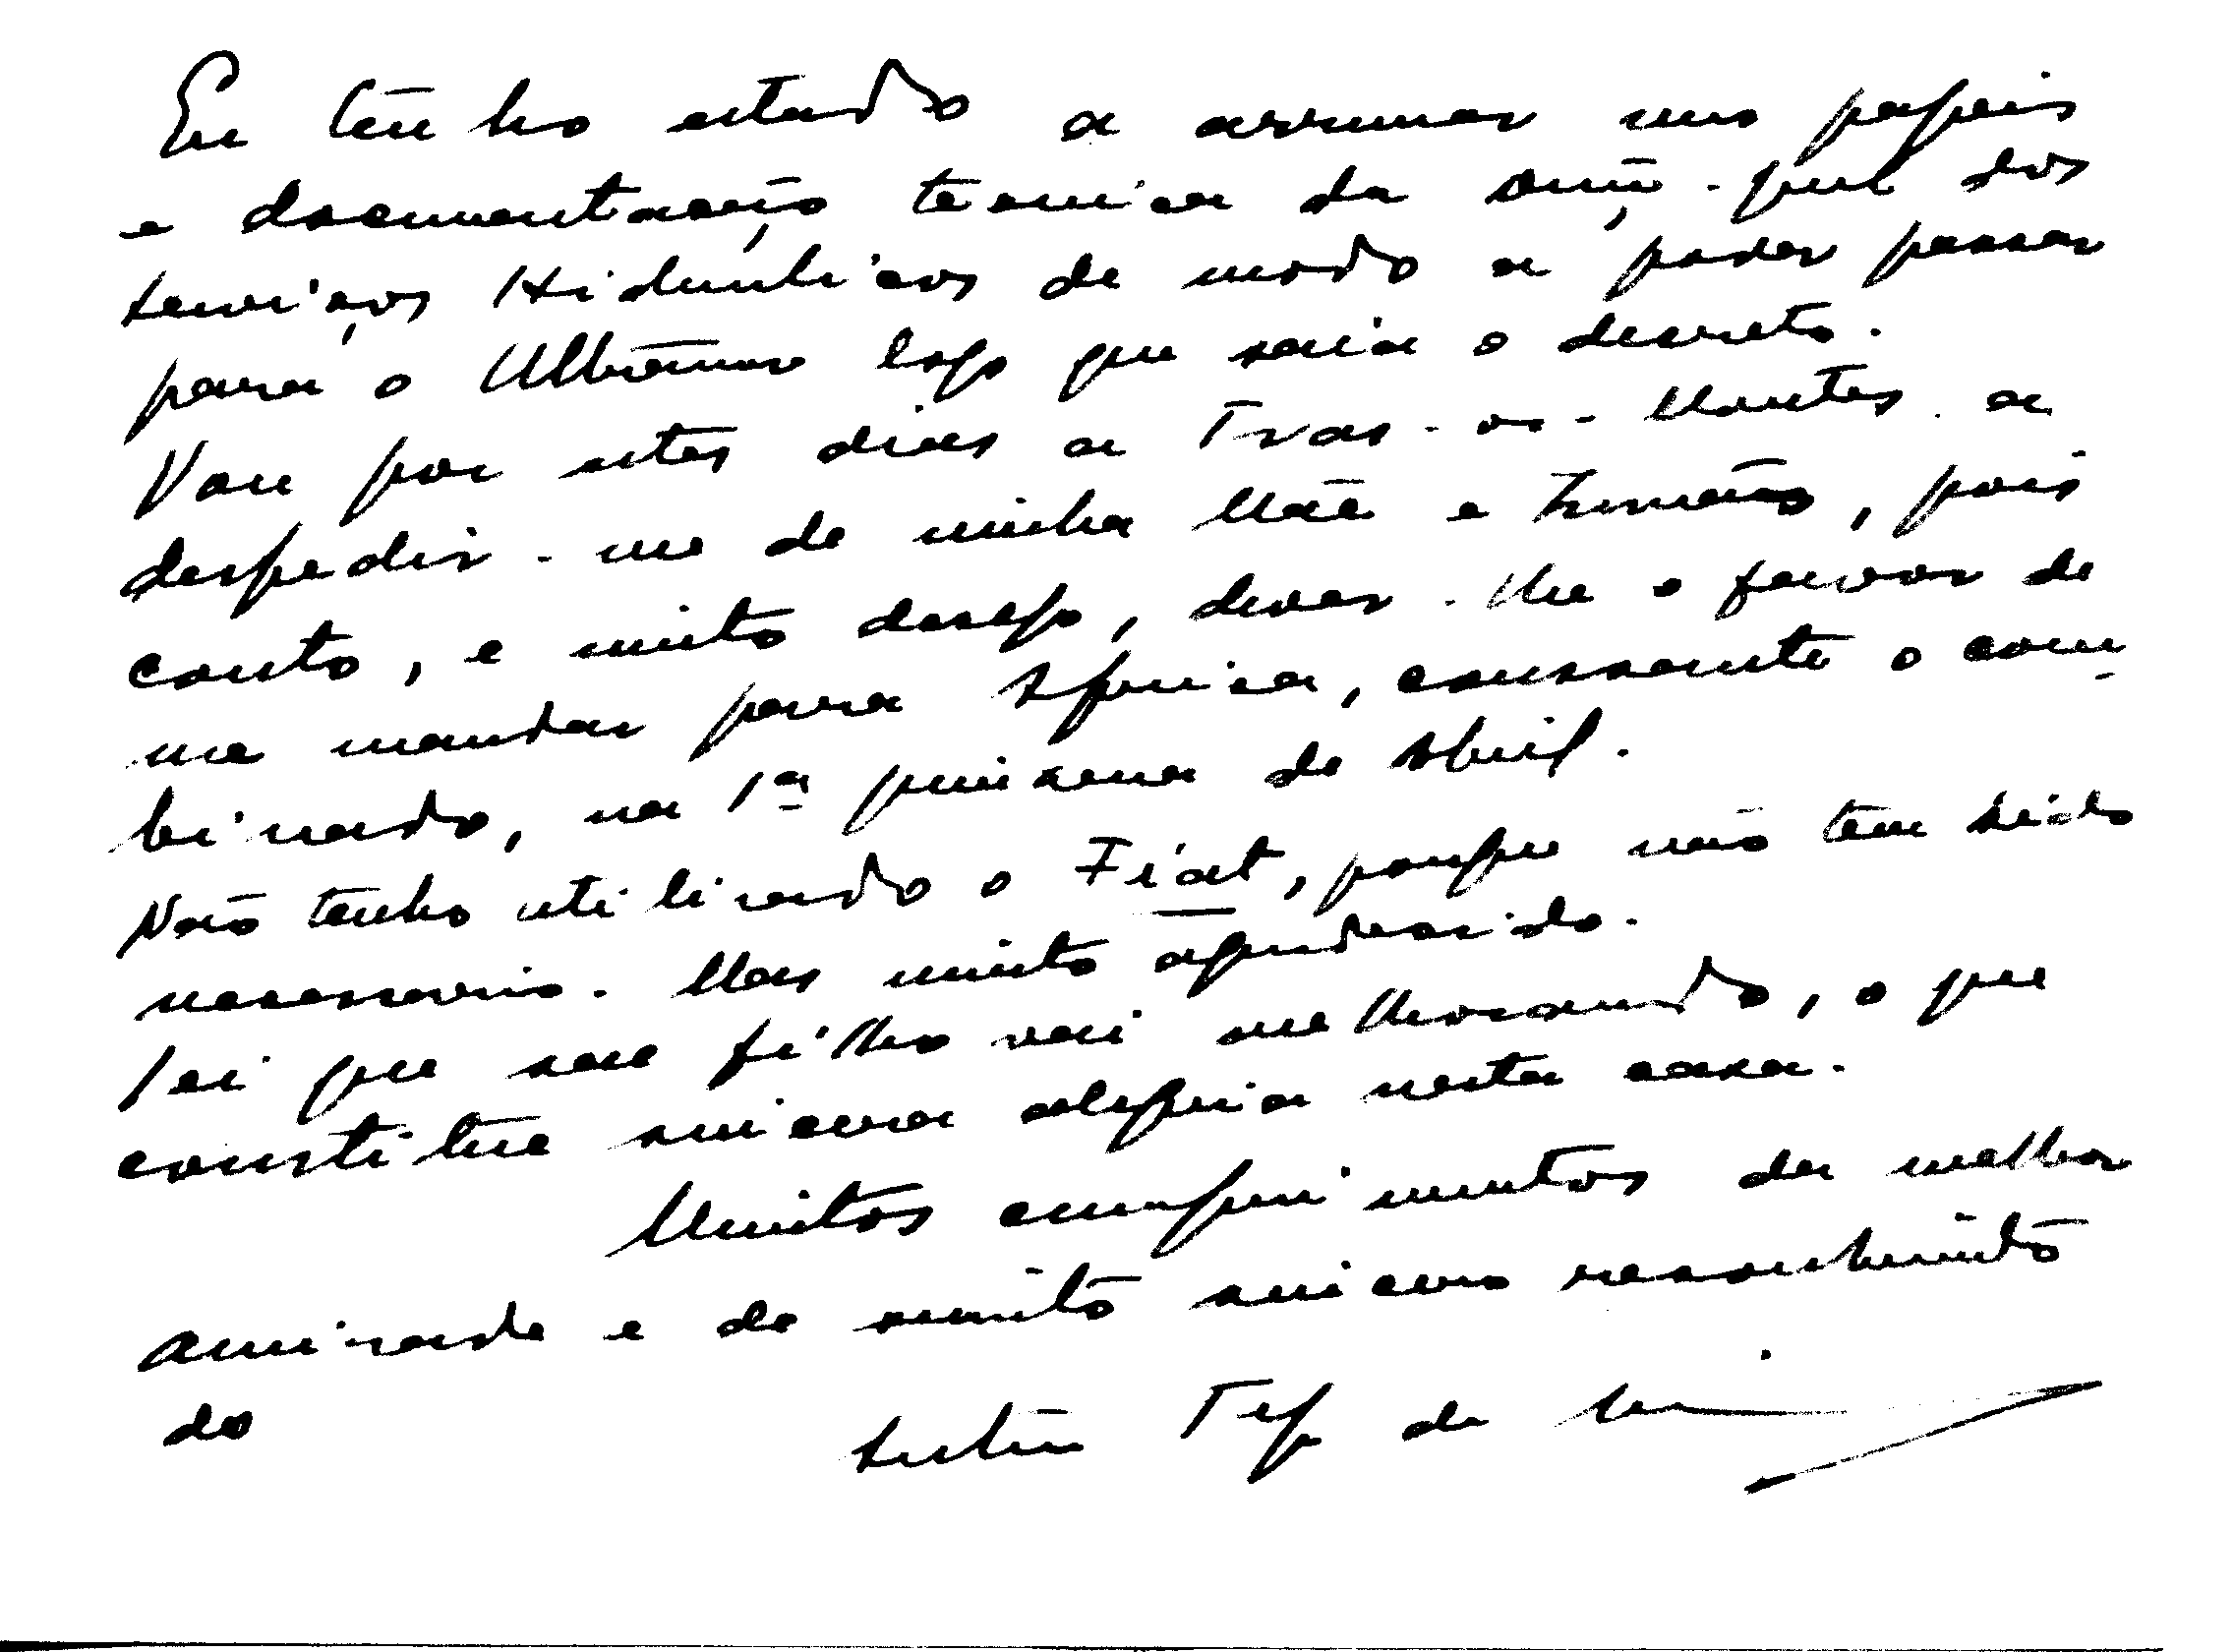 Eu tenho estado a arrumar uns papeis
e documentação tecnica da Direcç. geral dos
Serviços Hidraulicos de modo a poder passar
para o Ultramar logo que saia o decreto.
Vou por estes dias a Tras-os-Montes a
despedir-me de minha Mãe e Irmãos, pois
conto, e muito desejo, dever-lhe o favor de
me mandar para Africa, consoante o com-
binado, na 1ª quinzena de Abril.
Não tenho utilizado o Fiat, porque não tem sido
necessario. Mas muito agradecido.
Sei que seu filho vai melhorando, o que
constitue sincera alegria nesta casa.
Muitos cumprimentos da melhor
amizade e do muito sincero reconhecimento
do
de